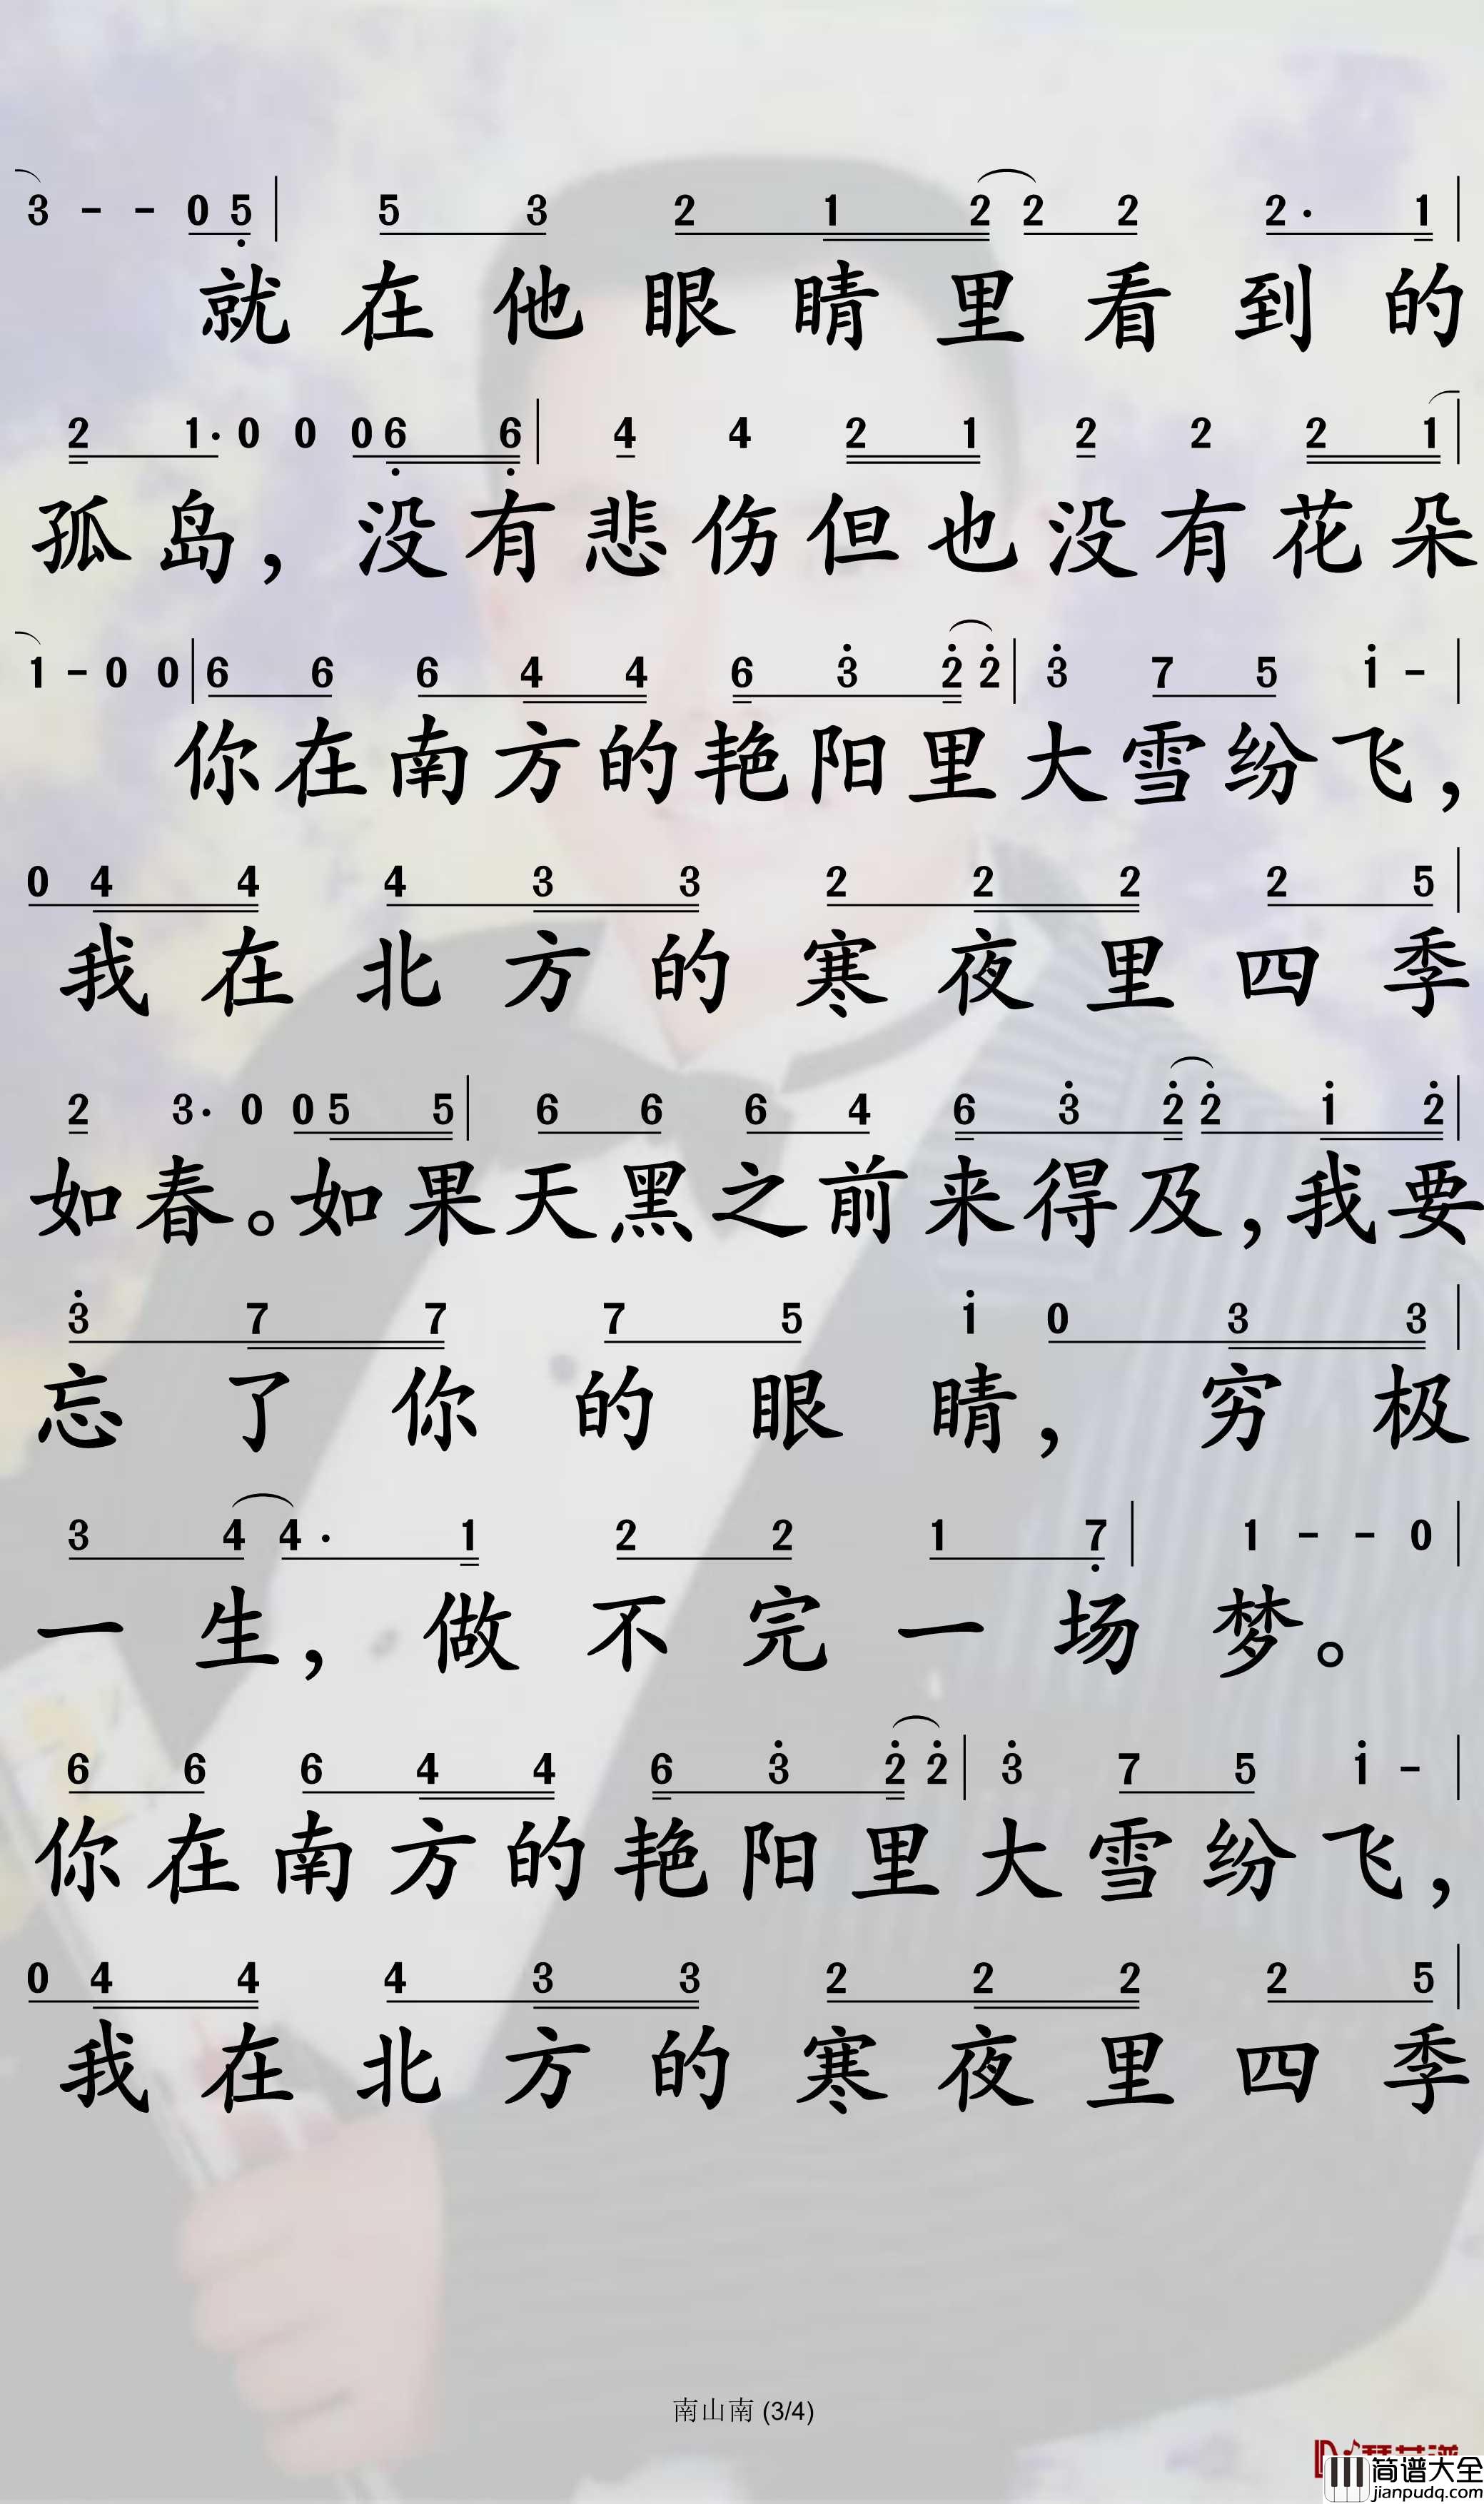 3 - - 0 5 | 5 3 2 1 2 2 2 2· 1 |
就在他眼睛里看到的
2 1· 0 0 0 6 6 | 4 4 2 1 2 2 2 1 |
孤岛，没有悲伤但也没有花朵
1 - 0 0 | 6 6 6 4 4 6 3 2 2 | 3 7 5 1 - |
你在南方的艳阳里大雪纷飞，
0 4 4 4 3 3 2 2 2 2 5 |
我在北方的寒夜里四季
2 3· 0 0 5 5 | 6 6 6 4 6 3 2 2 1 2 |
如春。如果天黑之前来得及，我要
3 7 7 7 5 1 0 3 3 |
忘了你的眼睛，穷极
3 4 4· 1 2 2 1 7 | 1 - - 0 |
一生，做不完一场梦。
6 6 6 4 4 6 3 2 2 | 3 7 5 1 - |
你在南方的艳阳里大雪纷飞，
0 4 4 4 3 3 2 2 2 2 5 |
我在北方的寒夜里四季
南山南 (3/4)
简谱大全
jianpudq.com